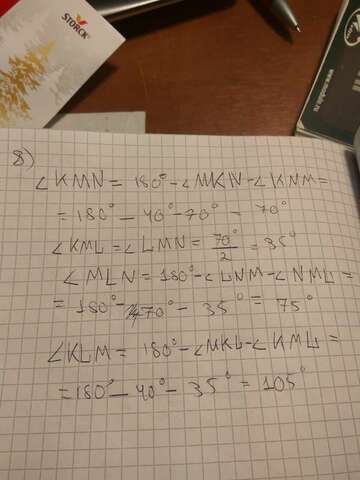 STORCK
8)
∠KMN = 180° - ∠MKN - ∠KNM =
= 180° - 40° - 70° - 70°
∠KML = ∠LMN = 70°/2 = 35°
∠MLN = 180° - ∠LNM - ∠NML =
= 180° - 70° - 35° = 75°
∠KLM = 180° - ∠MKL - ∠KML =
= 180° - 40° - 35° = 105°